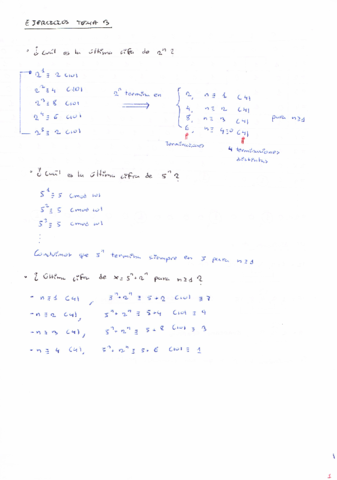 EJERCICIOS TEMA 3
• ¿Cuál es la última cifra de 2ⁿ?
2¹ ≡ 2 (10)
2² ≡ 4 (10)
2³ ≡ 8 (10)
2⁴ ≡ 6 (10)
2⁵ ≡ 2 (10)
2ⁿ termina en
⟹
2, n ≡ 1 (4)
4, n ≡ 2 (4)
8, n ≡ 3 (4)
6, n ≡ 4≡0 (4)
para n≥1
terminaciones
4 terminaciones
distintas
• ¿Cuál es la última cifra de 5ⁿ?
5¹ ≡ 5 (mod 10)
5² ≡ 5 (mod 10)
5³ ≡ 5 (mod 10)
⋮
que 5ⁿ termina siempre en 5 para n≥1
• ¿Última cifra de x = 5ⁿ + 2ⁿ para n≥1?
- n ≡ 1 (4), 5ⁿ + 2ⁿ ≡ 5 + 2 (10) ≡ 7
- n ≡ 2 (4), 5ⁿ + 2ⁿ ≡ 5 + 4 (10) ≡ 9
- n ≡ 3 (4), 5ⁿ + 2ⁿ ≡ 5 + 8 (10) ≡ 3
- n ≡ 4 (4), 5ⁿ + 2ⁿ ≡ 5 + 6 (10) ≡ 1
1